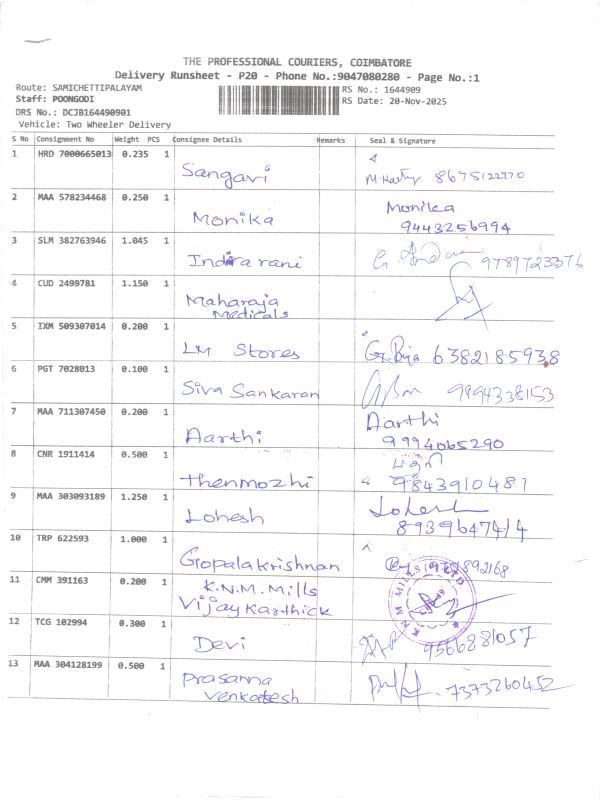 THE PROFESSIONAL COURIERS, COIMBATORE
Delivery Runsheet - P20 - Phone No.:9047080280 - Page No.:1
Route: SAMICHETTIPALAYAM RS No.: 1644909
Staff: POONGODI RS Date: 20-Nov-2025
DRS No.: DCJB164490901
Vehicle: Two Wheeler Delivery
S No Consignment No Weight PCS Consignee Details Remarks Seal & Signature
1 HRD 7000665013 0.235 1
Sangavi 8675122770
2 MAA 578234468 0.250 1 Monika
Monika 9443256994
3 SLM 382763946 1.045 1
Indirarani 9789723376
4 CUD 2499781 1.150 1
Maharaja
Medicals
5 IXM 509307014 0.200 1
LM Stores 6382185938
6 PGT 7028013 0.100 1
Siva Sankaran 9994338153
7 MAA 711307450 0.200 1 Aarthi
Aarthi 9994065290
8 CNR 1911414 0.500 1
Thenmozhi 9843910481
9 MAA 303093189 1.250 1 Lohesh
Lohesh 8939647414
10 TRP 622593 1.000 1
Gopalakrishnan
11 CMM 391163 0.200 1 K.N.M. Mills
Vijay Karthick
12 TCG 102994 0.300 1
Devi 9566281057
13 MAA 304128199 0.500 1 Prasanna
Venkatesh 7373260452